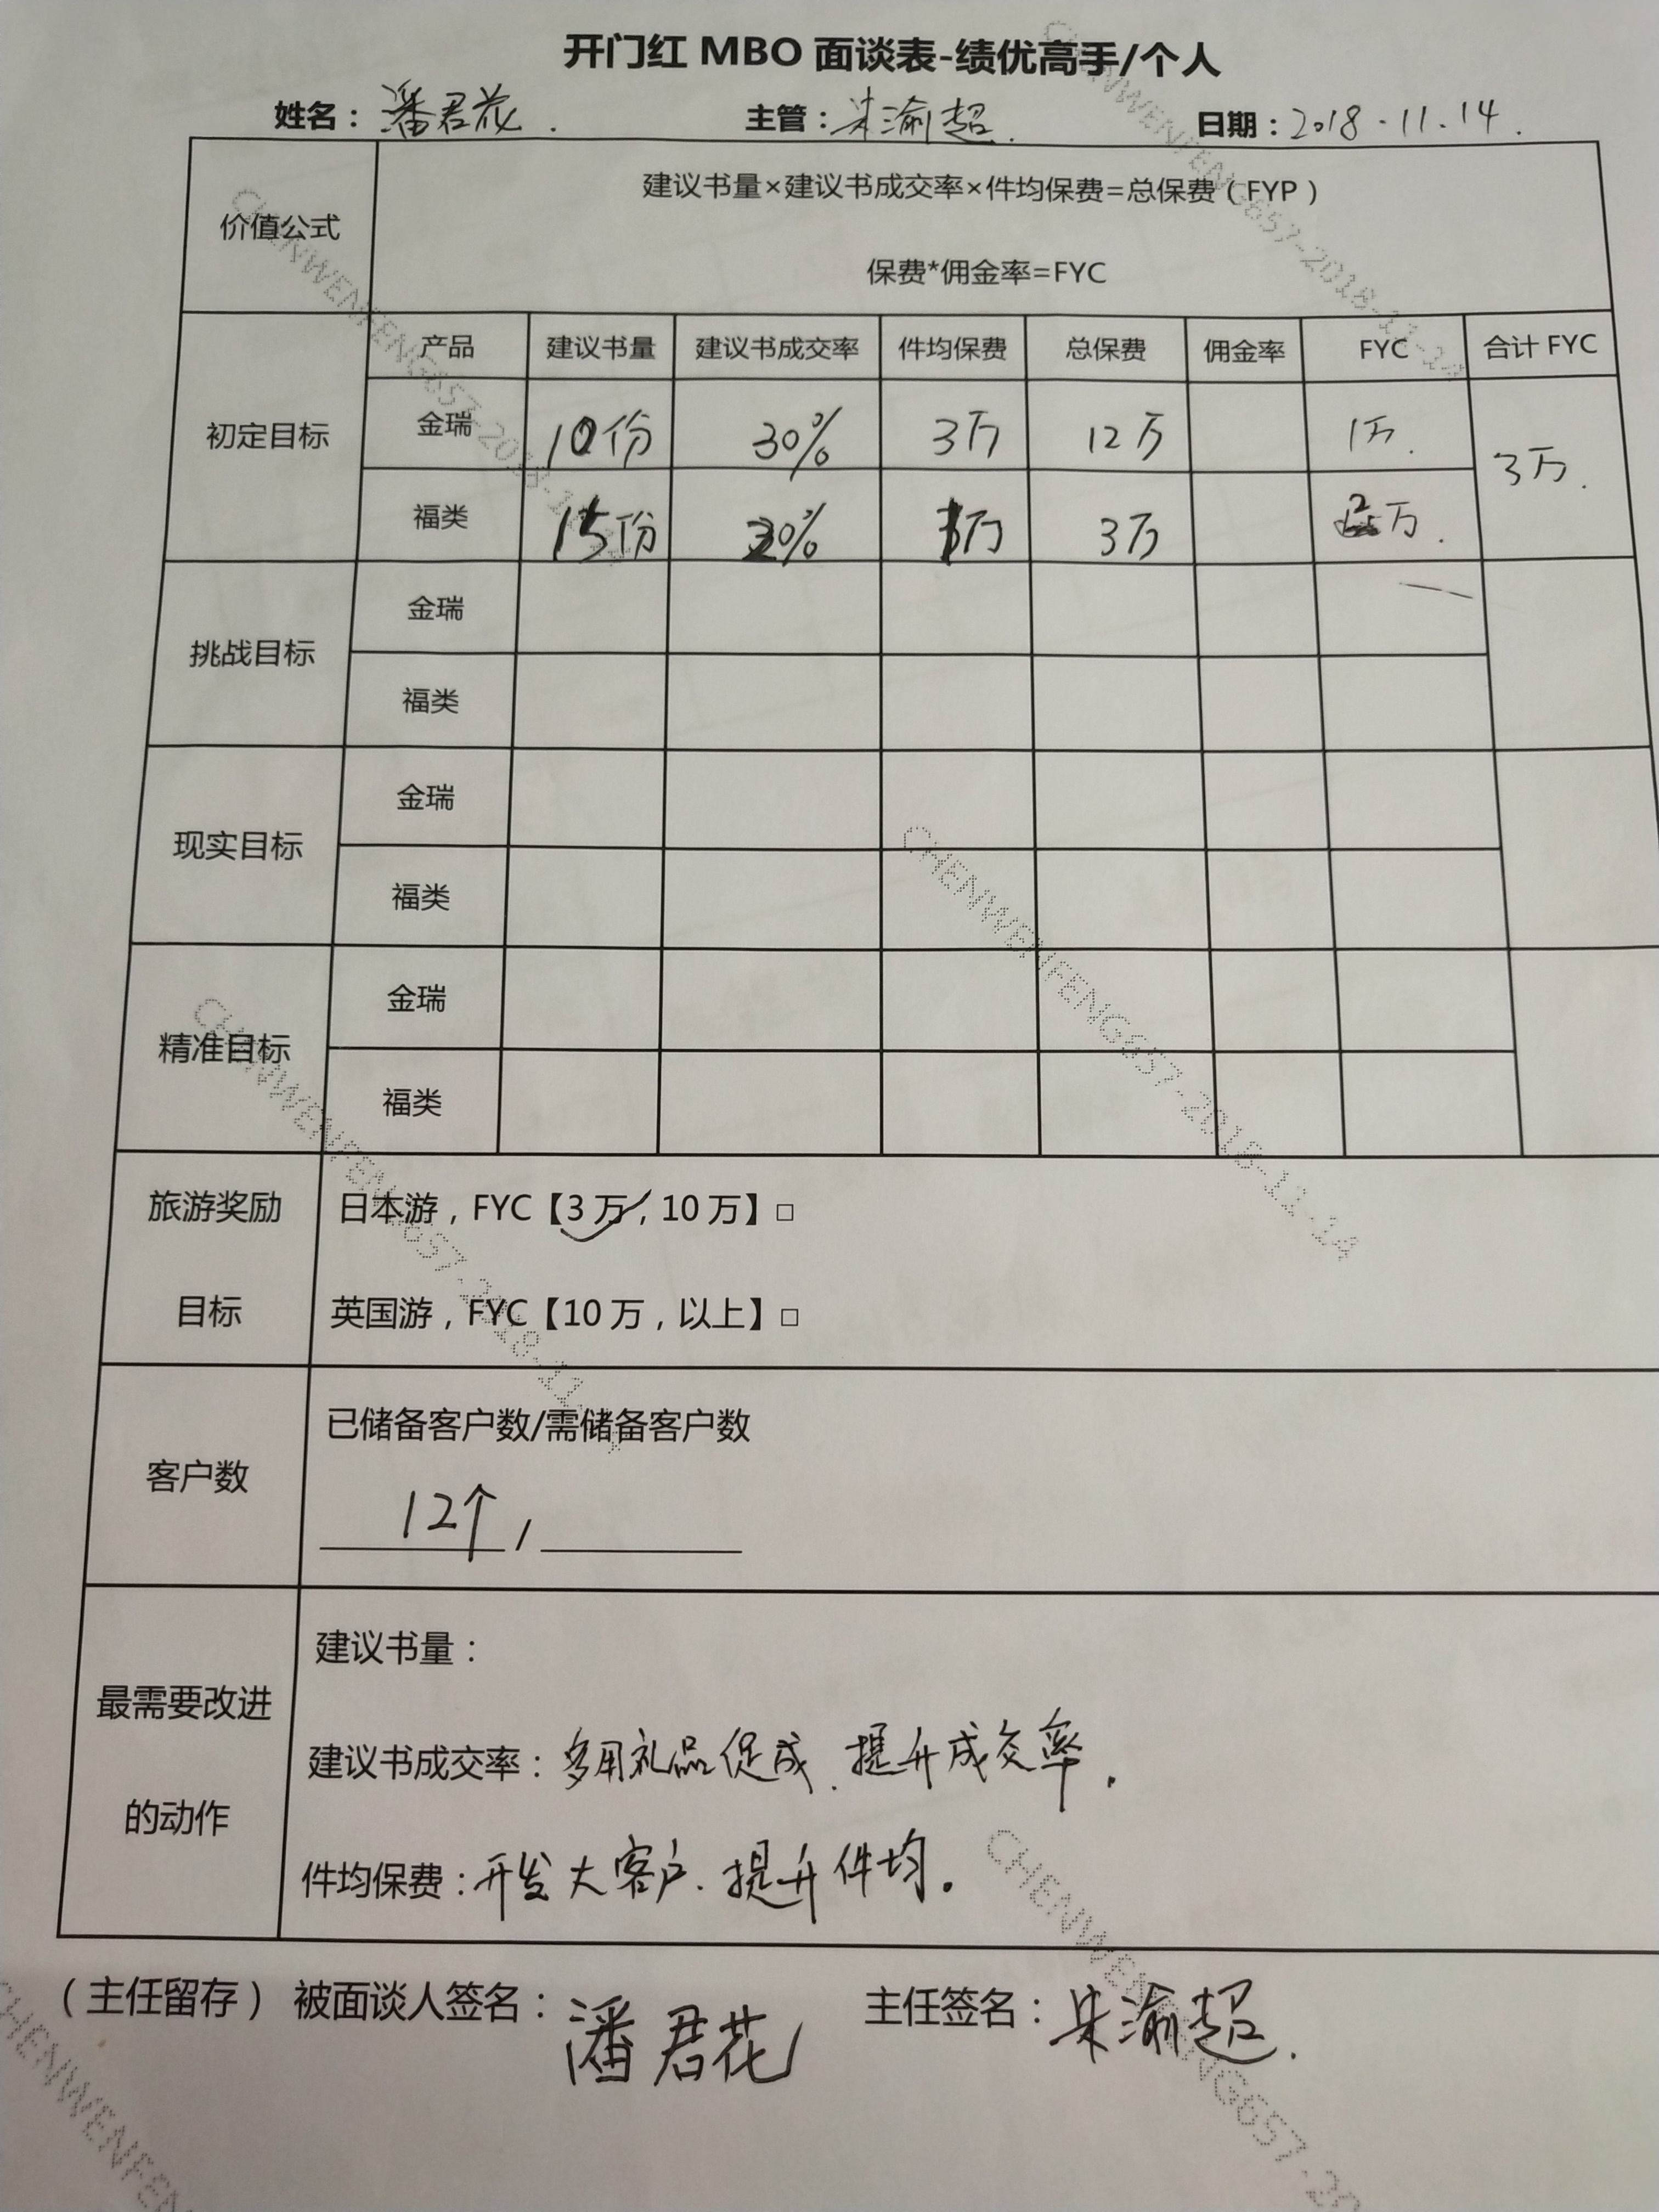 开门红 MBO 面谈表-绩优高手/个人
姓名：潘君花. 主管：朱渝超. 日期：2018.11.14.
价值公式
建议书量×建议书成交率×件均保费=总保费（FYP）
保费*佣金率=FYC
产品 建议书量 建议书成交率 件均保费 总保费 佣金率 FYC 合计 FYC
初定目标
金瑞 10份 30% 3万 12万 1万.
3万.
福类 15份 20% 1万 3万 2万.
挑战目标
金瑞
福类
现实目标
金瑞
福类
精准目标
金瑞
福类
旅游奖励
目标
日本游，FYC【3 万，10 万】□
英国游，FYC【10 万，以上】□
客户数
已储备客户数/需储备客户数
12个 /
最需要改进
的动作
建议书量：
建议书成交率：多用礼品促成、提升成交率.
件均保费：开发大客户、提升件均。
（主任留存）被面谈人签名：潘君花 主任签名：朱渝超.
CHENWENFENG657-2018-11-14
CHENWENFENG657-2018-11-14
CHENWENFENG657-2018-11-14
CHENWENFENG657-2018-11-14
CHENWENFENG657-20
CHENWENFEN